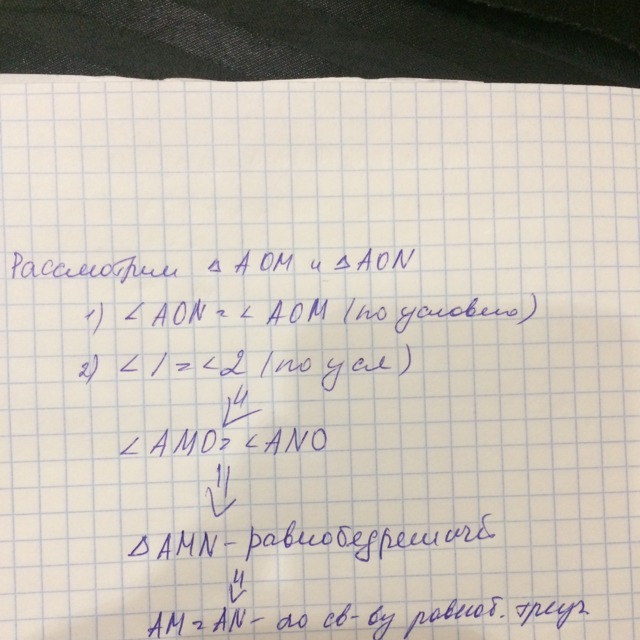 Рассмотрим △ AOM и △ AON
1) ∠ AON = ∠ AOM (по условию)
2) ∠1 = ∠2 (по усл)
⇓
∠AMO = ∠ANO
⇓
△ AMN - равнобедренный
⇓
AM = AN - по св-ву равноб. треуг